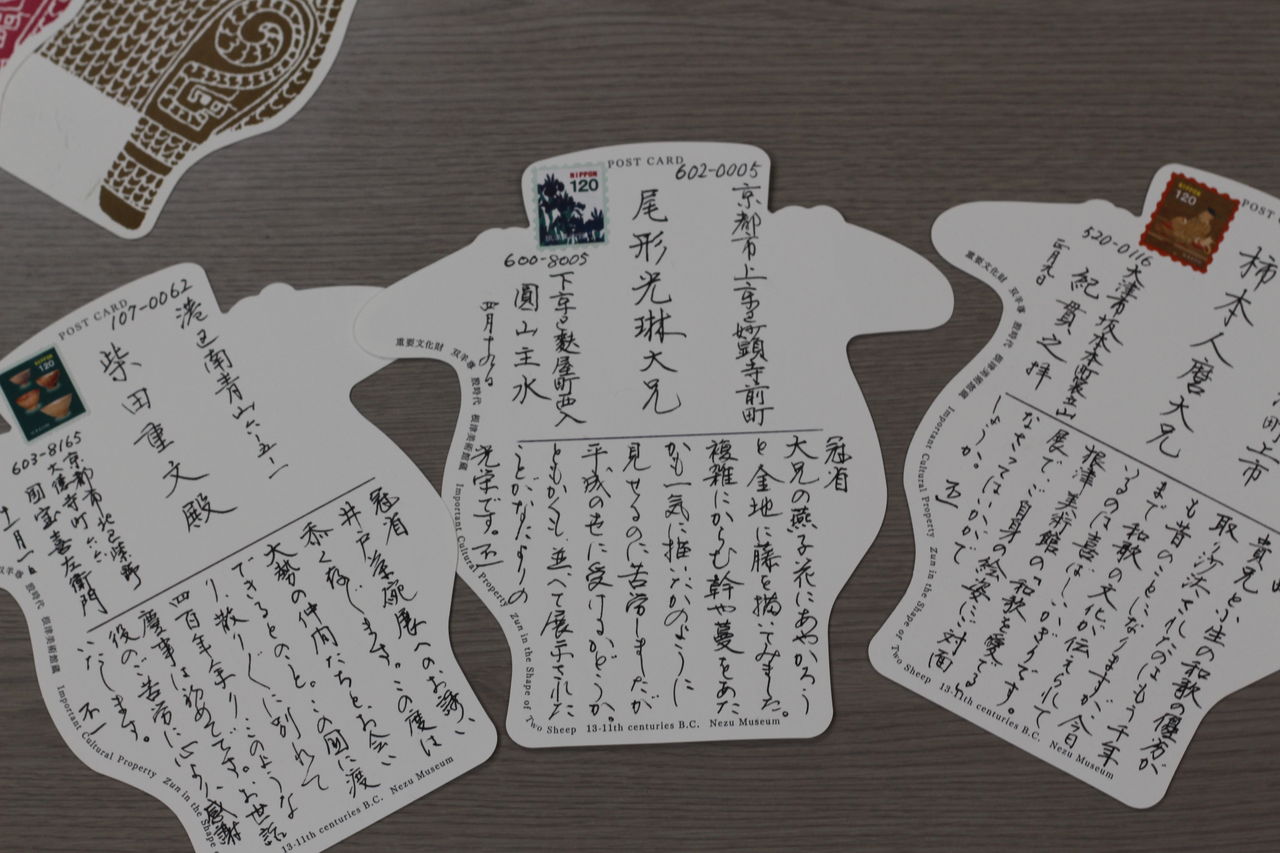 POST CARD
107-0062
港区南青山六-五-一
柴田重文殿
NIPPON
120
603-8165
京都市北区紫野
大徳寺町六六
国宝喜左衛門
十一月一日
冠省
井戸茶碗展へのお誘い、
忝く存じます。この度は
大勢の仲間たちとお会い
できるとのこと。この国に渡
り、散りぢりに別れて
四百年余り、このような
慶事は初めてです。お世話
役のご苦労に心より感謝
いたします。 不一
双羊尊 殷時代 根津美術館蔵 Important Cultural Property Zun in the Shape
13-11th centuries B.C. Nezu Museum
POST CARD
602-0005
京都市上京区妙顕寺前町
尾形光琳大兄
NIPPON
120
600-8005
下京区麩屋町西入
圓山主水
四月十九日
冠省
大兄の燕子花にあやかろう
と金地に藤を描いてみました。
複雑にからむ幹や蔓をあた
かも一気に描いたかのように
見せるのに苦労しましたが
平成の世に受けるかどうか。
ともかくも、並べて展示された
ことがなによりの
光栄です。 不一
重要文化財 双羊尊 殷時代 根津美術館蔵 Important Cultural Property Zun in the Shape of Two Sheep 13-11th centuries B.C. Nezu Museum
POST
柿本人麿大兄
上市
NIPPON
120
520-0116
大津市坂本本町裳立山
紀貫之拝
正月九日
貴兄と小生の和歌の優劣が
取り沙汰されたのはもう千年
も昔のことになりますが、今日
まで和歌の文化が伝えられて
いるのは喜ばしいかぎりです。
根津美術館の「和歌を愛でる」
展で、ご自身の絵姿にご対面
なさってはいかがで
しょうか。 不一
重要文化財 双羊尊 殷時代 根津美術館蔵 Important Cultural Property Zun in the Shape of Two Sheep 13-11th centuries B.C. Nezu Museum